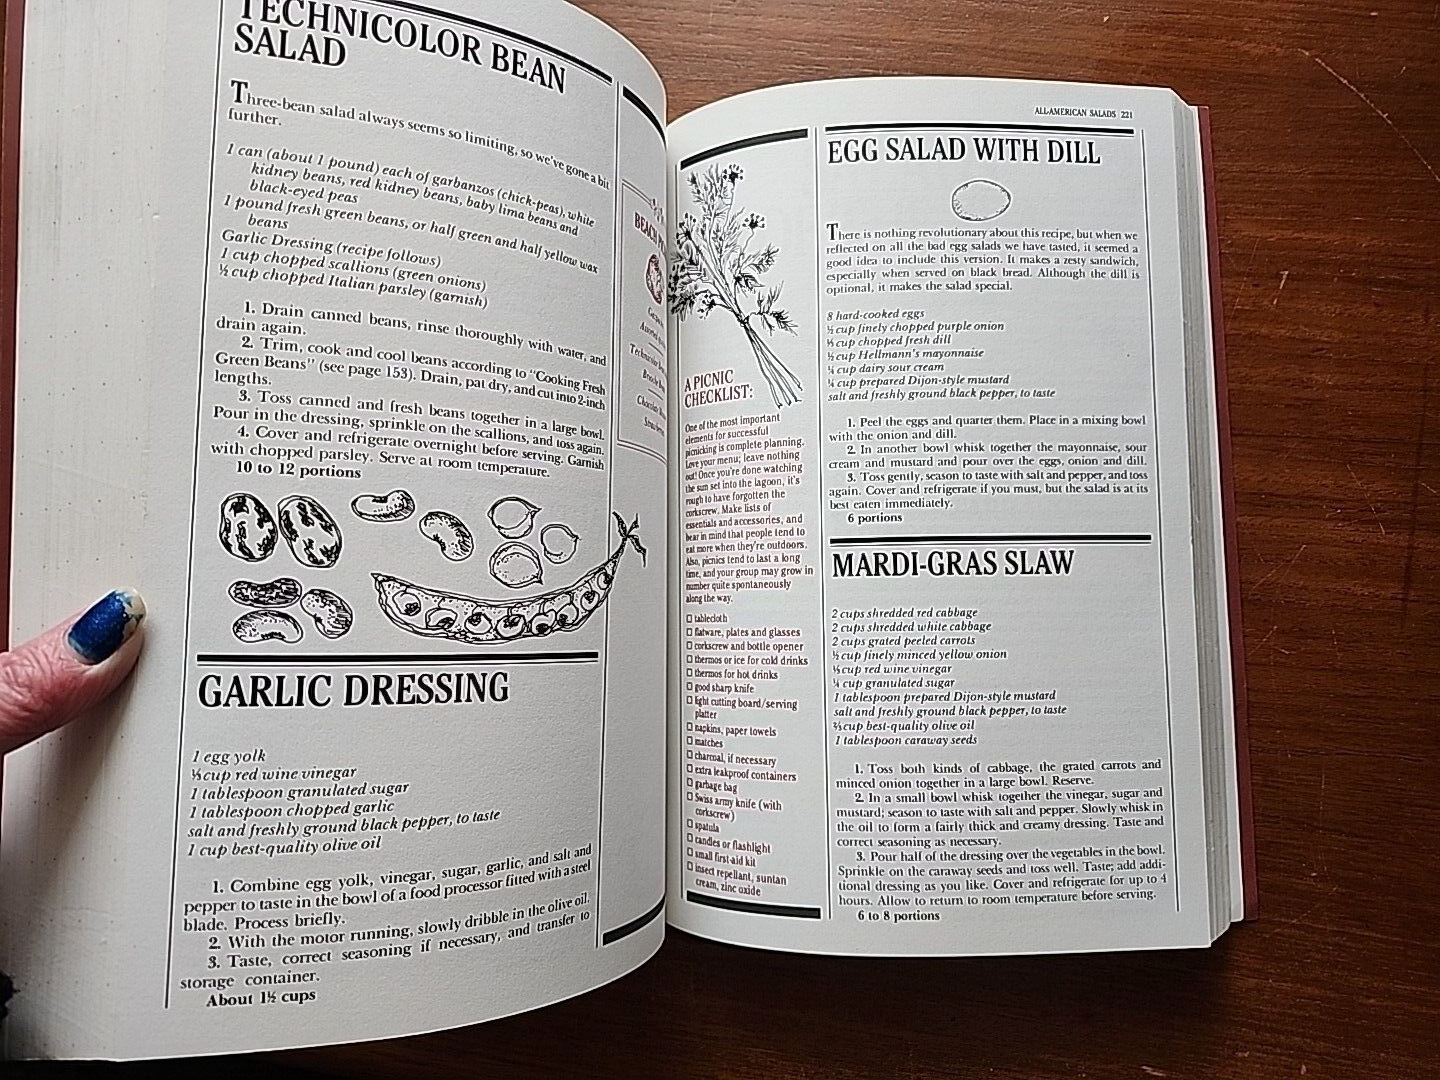 TECHNICOLOR BEAN
SALAD
Three-bean salad always seems so limiting, so we've gone a bit
further.
1 can (about 1 pound) each of garbanzos (chick-peas), white
kidney beans, red kidney beans, baby lima beans and
black-eyed peas
1 pound fresh green beans, or half green and half yellow wax
beans
Garlic Dressing (recipe follows)
1 cup chopped scallions (green onions)
½ cup chopped Italian parsley (garnish)
1. Drain canned beans, rinse thoroughly with water, and
drain again.
2. Trim, cook and cool beans according to "Cooking Fresh
Green Beans" (see page 153). Drain, pat dry, and cut into 2-inch
lengths.
3. Toss canned and fresh beans together in a large bowl.
Pour in the dressing, sprinkle on the scallions, and toss again.
4. Cover and refrigerate overnight before serving. Garnish
with chopped parsley. Serve at room temperature.
10 to 12 portions
GARLIC DRESSING
1 egg yolk
⅓ cup red wine vinegar
1 tablespoon granulated sugar
1 tablespoon chopped garlic
salt and freshly ground black pepper, to taste
1 cup best-quality olive oil
1. Combine egg yolk, vinegar, sugar, garlic, and salt and
pepper to taste in the bowl of a food processor fitted with a steel
blade. Process briefly.
2. With the motor running, slowly dribble in the olive oil.
3. Taste, correct seasoning if necessary, and transfer to
storage container.
About 1½ cups
BEACH
A PICNIC
CHECKLIST:
One of the most important
elements for successful
picnicking is complete planning.
Love your menu; leave nothing
out! Once you're done watching
the sun set into the lagoon, it's
rough to have forgotten the
corkscrew. Make lists of
essentials and accessories, and
bear in mind that people tend to
eat more when they're outdoors.
Also, picnics tend to last a long
time, and your group may grow in
number quite spontaneously
along the way.
☐ tablecloth
☐ flatware, plates and glasses
☐ corkscrew and bottle opener
☐ thermos or ice for cold drinks
☐ thermos for hot drinks
☐ good sharp knife
☐ light cutting board/serving
platter
☐ napkins, paper towels
☐ matches
☐ charcoal, if necessary
☐ extra leakproof containers
☐ garbage bag
☐ Swiss army knife (with
corkscrew)
☐ spatula
☐ candles or flashlight
☐ small first-aid kit
☐ insect repellant, suntan
cream, zinc oxide
ALL-AMERICAN SALADS 221
EGG SALAD WITH DILL
There is nothing revolutionary about this recipe, but when we
reflected on all the bad egg salads we have tasted, it seemed a
good idea to include this version. It makes a zesty sandwich,
especially when served on black bread. Although the dill is
optional, it makes the salad special.
8 hard-cooked eggs
½ cup finely chopped purple onion
⅓ cup chopped fresh dill
½ cup Hellmann's mayonnaise
¼ cup dairy sour cream
¼ cup prepared Dijon-style mustard
salt and freshly ground black pepper, to taste
1. Peel the eggs and quarter them. Place in a mixing bowl
with the onion and dill.
2. In another bowl whisk together the mayonnaise, sour
cream and mustard and pour over the eggs, onion and dill.
3. Toss gently, season to taste with salt and pepper, and toss
again. Cover and refrigerate if you must, but the salad is at its
best eaten immediately.
6 portions
MARDI-GRAS SLAW
2 cups shredded red cabbage
2 cups shredded white cabbage
2 cups grated peeled carrots
½ cup finely minced yellow onion
⅓ cup red wine vinegar
¼ cup granulated sugar
1 tablespoon prepared Dijon-style mustard
salt and freshly ground black pepper, to taste
⅔ cup best-quality olive oil
1 tablespoon caraway seeds
1. Toss both kinds of cabbage, the grated carrots and
minced onion together in a large bowl. Reserve.
2. In a small bowl whisk together the vinegar, sugar and
mustard; season to taste with salt and pepper. Slowly whisk in
the oil to form a fairly thick and creamy dressing. Taste and
correct seasoning as necessary.
3. Pour half of the dressing over the vegetables in the bowl.
Sprinkle on the caraway seeds and toss well. Taste; add addi-
tional dressing as you like. Cover and refrigerate for up to 4
hours. Allow to return to room temperature before serving.
6 to 8 portions